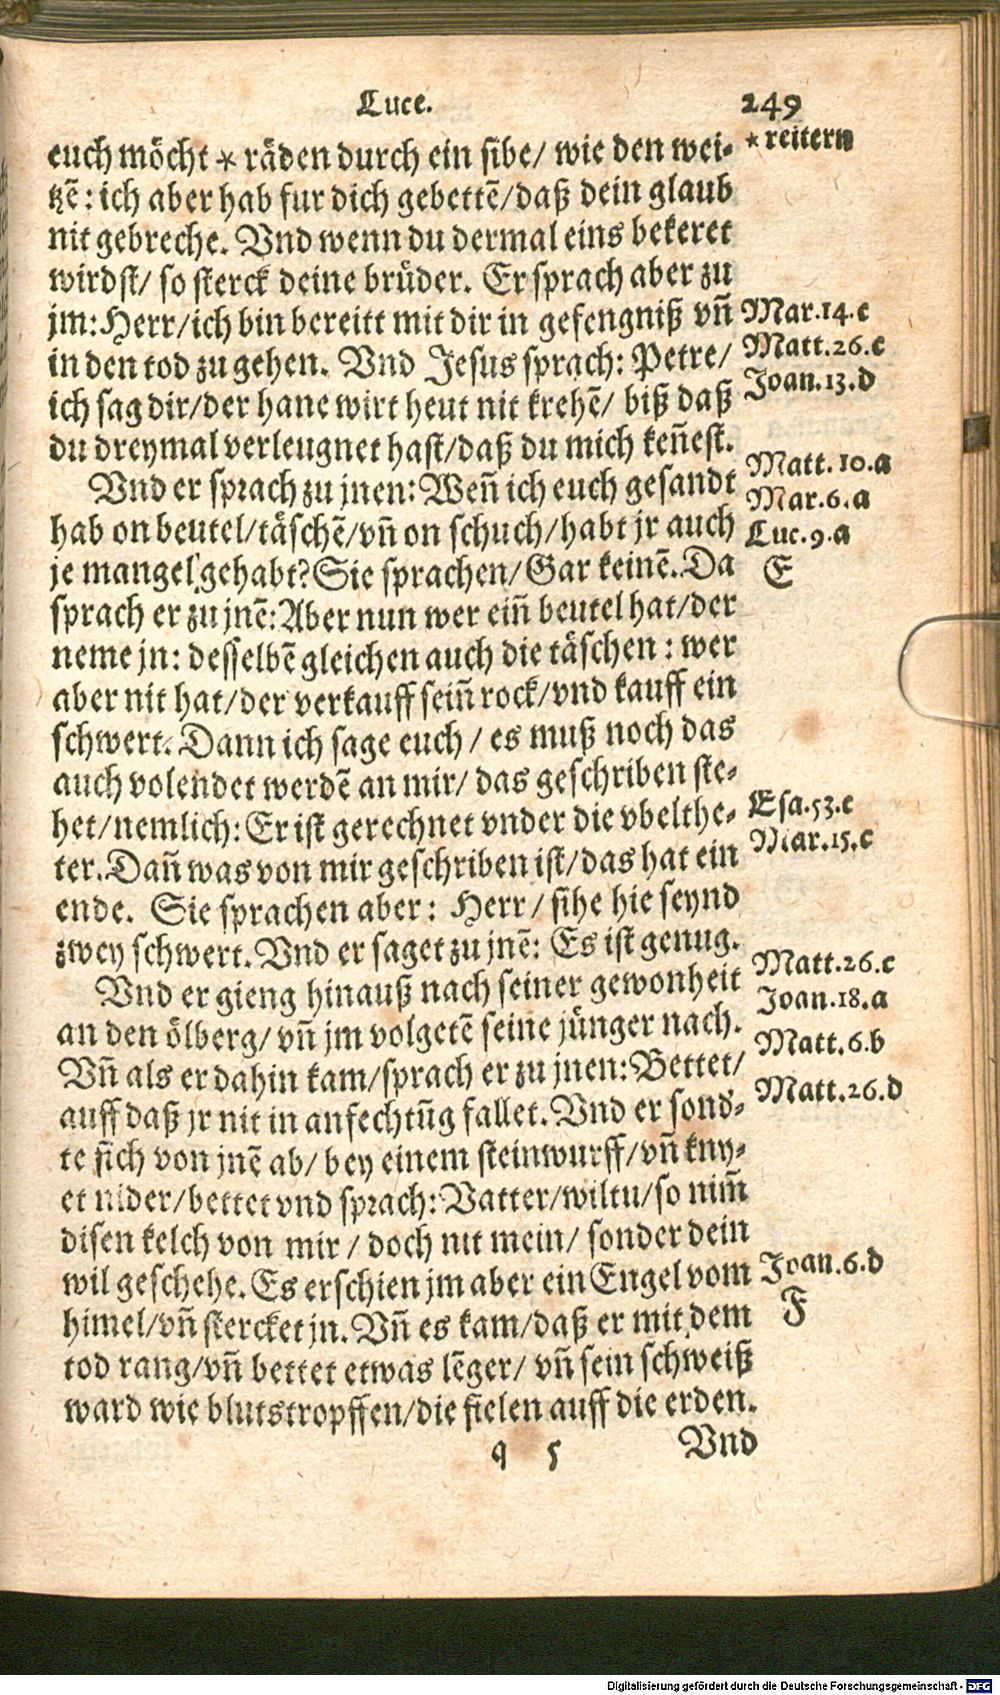 Luce. 249
euch möcht * räden durch ein sibe/ wie den wei⸗
tzē: ich aber hab fur dich gebettē/daß dein glaub
nit gebreche. Vnd wenn du dermal eins bekeret
wirdst/ so sterck deine brüder. Er sprach aber zu
jm: Herr/ich bin bereitt mit dir in gefengniß vn̄
in den tod zu gehen. Vnd Jesus sprach: Petre/
ich sag dir/der hane wirt heut nit krehē/ biß daß
du dreymal verleugnet hast/daß du mich ken̄est.
Vnd er sprach zu jnen: Wen̄ ich euch gesandt
hab on beutel/täschē/vn̄ on schuch/habt jr auch
je mangel gehabt? Sie sprachen/ Gar keinē. Da
sprach er zu jnē: Aber nun wer ein̄ beutel hat/der
neme jn: desselbē gleichen auch die täschen: wer
aber nit hat/der verkauff sein̄ rock/vnd kauff ein
schwert. Dann ich sage euch/ es muß noch das
auch volendet werdē an mir/ das geschriben ste⸗
het/nemlich: Er ist gerechnet vnder die vbelthe⸗
ter. Dan̄ was von mir geschriben ist/das hat ein
ende. Sie sprachen aber: Herr/ sihe hie seynd
zwey schwert. Vnd er saget zu jnē: Es ist genug.
Vnd er gieng hinauß nach seiner gewonheit
an den ölberg/ vn̄ jm volgetē seine jünger nach.
Vn̄ als er dahin kam/sprach er zu jnen: Bettet/
auff daß jr nit in anfechtūg fallet. Vnd er sond⸗
te sich von jnē ab/ bey einem steinwurff/vn̄ kny⸗
et nider/bettet vnd sprach: Vatter/wiltu/so nim̄
disen kelch von mir/ doch nit mein/ sonder dein
wil geschehe. Es erschien jm aber ein Engel vom
himel/vn̄ stercket jn. Vn̄ es kam/daß er mit dem
tod rang/vn̄ bettet etwas lēger/ vn̄ sein schweiß
ward wie blutstropffen/die fielen auff die erden.
q 5 Vnd
* reitern
Mar.14.c
Matt.26.c
Joan.13.d
Matt.10.a
Mar.6.a
Luc.9.a
E
Esa.53.c
Mar.15.c
Matt.26.c
Joan.18.a
Matt.6.b
Matt.26.d
Joan.6.d
F
Digitalisierung gefördert durch die Deutsche Forschungsgemeinschaft - DFG